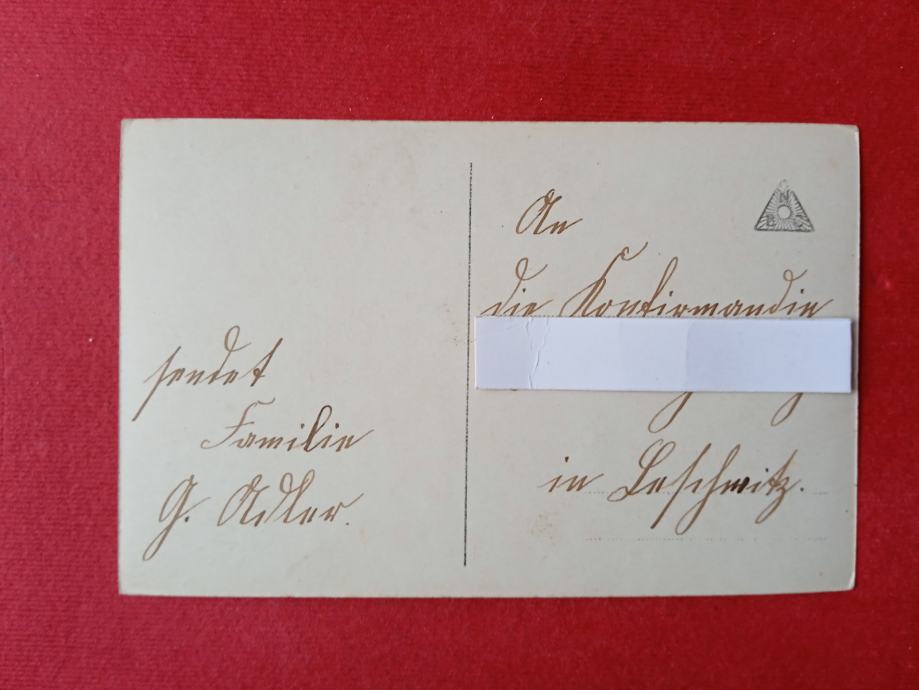 sendet
Familie
G. Adler.
An
die Konfirmandin
in Leschwitz.